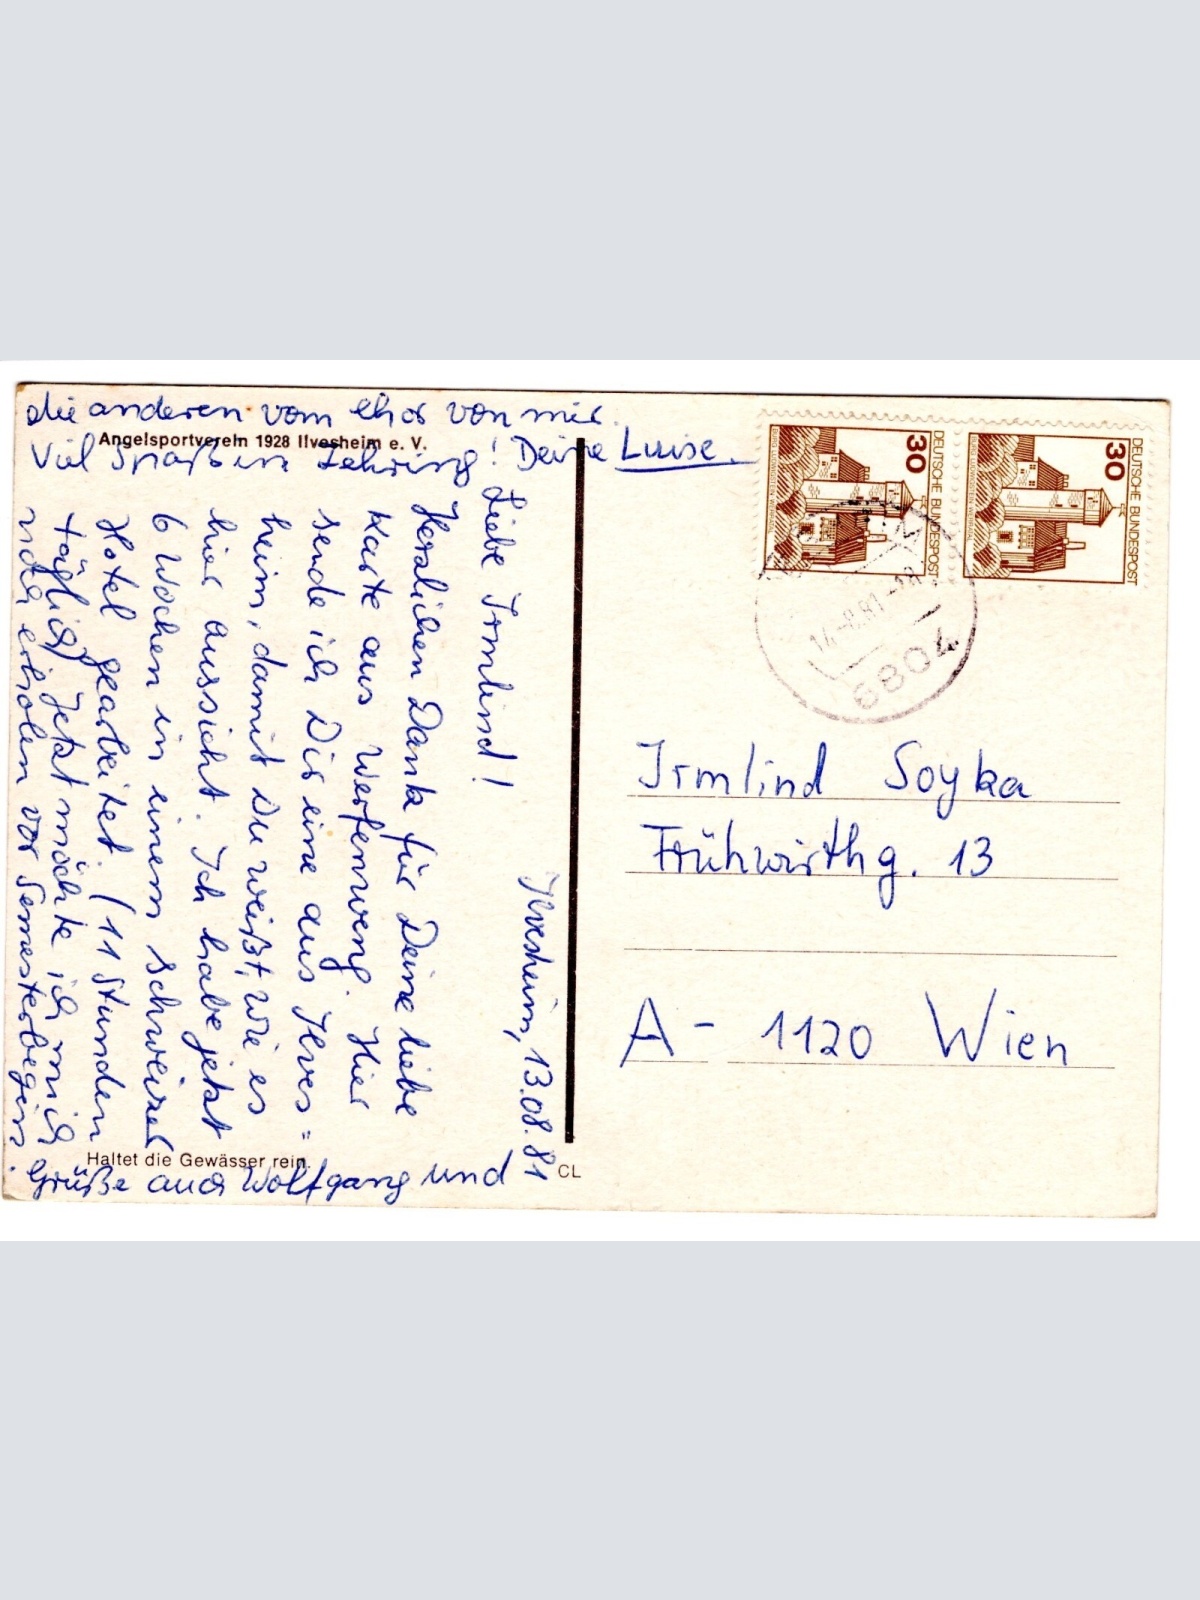 Angelsportverein 1928 Ilvesheim e. V.
Ilvesheim, 13.08.81
Liebe Irmlind!
Herzlichen Dank für Deine liebe
Karte aus Werfenweng. Hier
sende ich Dir eine aus Ilves=
heim, damit Du weißt, wie es
hier aussieht. Ich habe jetzt
6 Wochen in einem schweizer
Hotel gearbeitet. (11 Stunden
täglich) Jetzt möchte ich mich
noch erholen vor Semesterbeginn.
Grüße auch Wolfgang und
die anderen vom Chor von mir.
Viel Spaß in! Deine Luise.
Haltet die Gewässer rein.
CL
DEUTSCHE BUNDESPOST
30
DEUTSCHE BUNDESPOST
30
14.-8.81-18
6804
Irmlind Soyka
Frühwirthg. 13
A - 1120 Wien